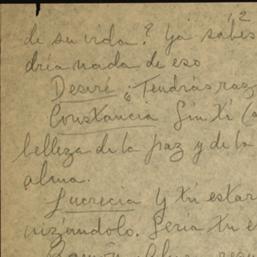 12
de su vida? Ya sabes
dría nada de eso
Desiré ¿Tendrás raz
Constancia Sin ti (a
belleza de la paz y de la
alma.
Lucrecia Y tú estar
nizándolo. Sería tu e